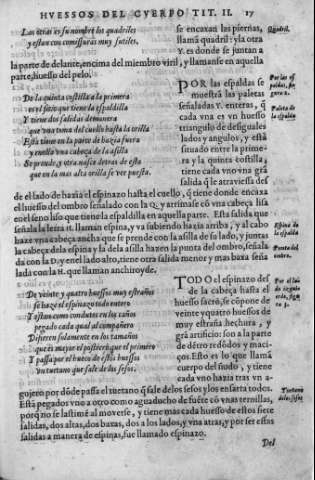 HVESSOS DEL CVERPO TIT. II. 17
Las otras es su nombre los quadriles
y estan con comissuras muy sutiles.
se encaxan las piernas,
llamã quadril: y la otra
Y. es donde se juntan a
Quadril.
la parte de delante, encima del miembro viril, y llamanse en aquella
parte, huesso del pelo.
De la quinta costilla a la primera
es el sitio que tiene la espaldilla
Y tiene dos salidas de manera
que vna toma del cuello hasta la orilla
Esta tiene en la parte de hazia fuera
y enella vna cabeça de la asilla
Se prende, y otra nasce detras de esta
que en la mas alta orilla se ver puesta.
POR las espaldas se
muestrã las paletas
señaladas Y. enteras, q̃
cada vna es vn huesso
triangulo de desiguales
lados y angulos, y está
situado entre la primera
y la quinta costilla,
tiene cada vno vna grã
salida q̃ le atraviessa desde
el lado de hazia el espinazo hasta el cuello, q̃ tiene donde encaxa
el huesso del ombro señalado con la Q, y arrimase cõ vna cabeça lisa
en el seno liso que tiene la espaldilla en aquella parte. Esta salida que
señala la letra H. llaman espina, y va subiendo hazia arriba, y al cabo
haze vna cabeça ancha que se prende con la asilla de su lado, y juntas
la cabeça dela espina y la dela asilla hazen la punta del ombro, señalada
con la D. y enel lado alto, tiene otra salida menor y mas baxa señalada
con la H. que llaman anchiroyde.
Paleta de
la espalda
Espina de
la espalda
Punta del
ombro.
De veinte y quatro huessos muy estraños
se haze el espinazo todo entero
Y estan como condutos en los caños
pegado cada qual al compañero
Difieren solamente en los tamaños
que es mejor el postrero que el primero
Y passa por el hueco de estos huessos
vn tuetano que sale de los sesos.
TODO el espinazo desde
la cabeça hasta el
huesso sacro, se cõpone de
veinte y quatro huessos de
muy estraña hechura, y
grã artificio: son a la parte
de dẽtro redõdos y macizos.
Esto es lo que llamã
cuerpo del ñudo, y tiene
cada vno hazia tras vn agujero
por dõde passa el tuetano q̃ sale de los sesos y los ensarta todos.
Está pegados vno a otro como aguaducho de fuẽte cõ vnas ternillas,
porq̃ no se lastimẽ al moverse, y tiene mas cada huesso de estos siete
salidas, dos altas, dos baxas, dos a los lados, y vna atras, y por ser essas
salidas a manera de espinas, fue llamado espinazo.
Tuetano
delos sesos
Del